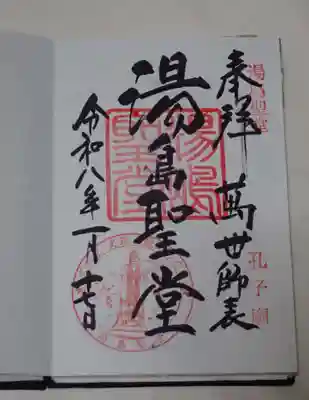 奉拝 萬世師表
湯島聖堂
孔子廟
湯島聖堂
令和八年一月十七日